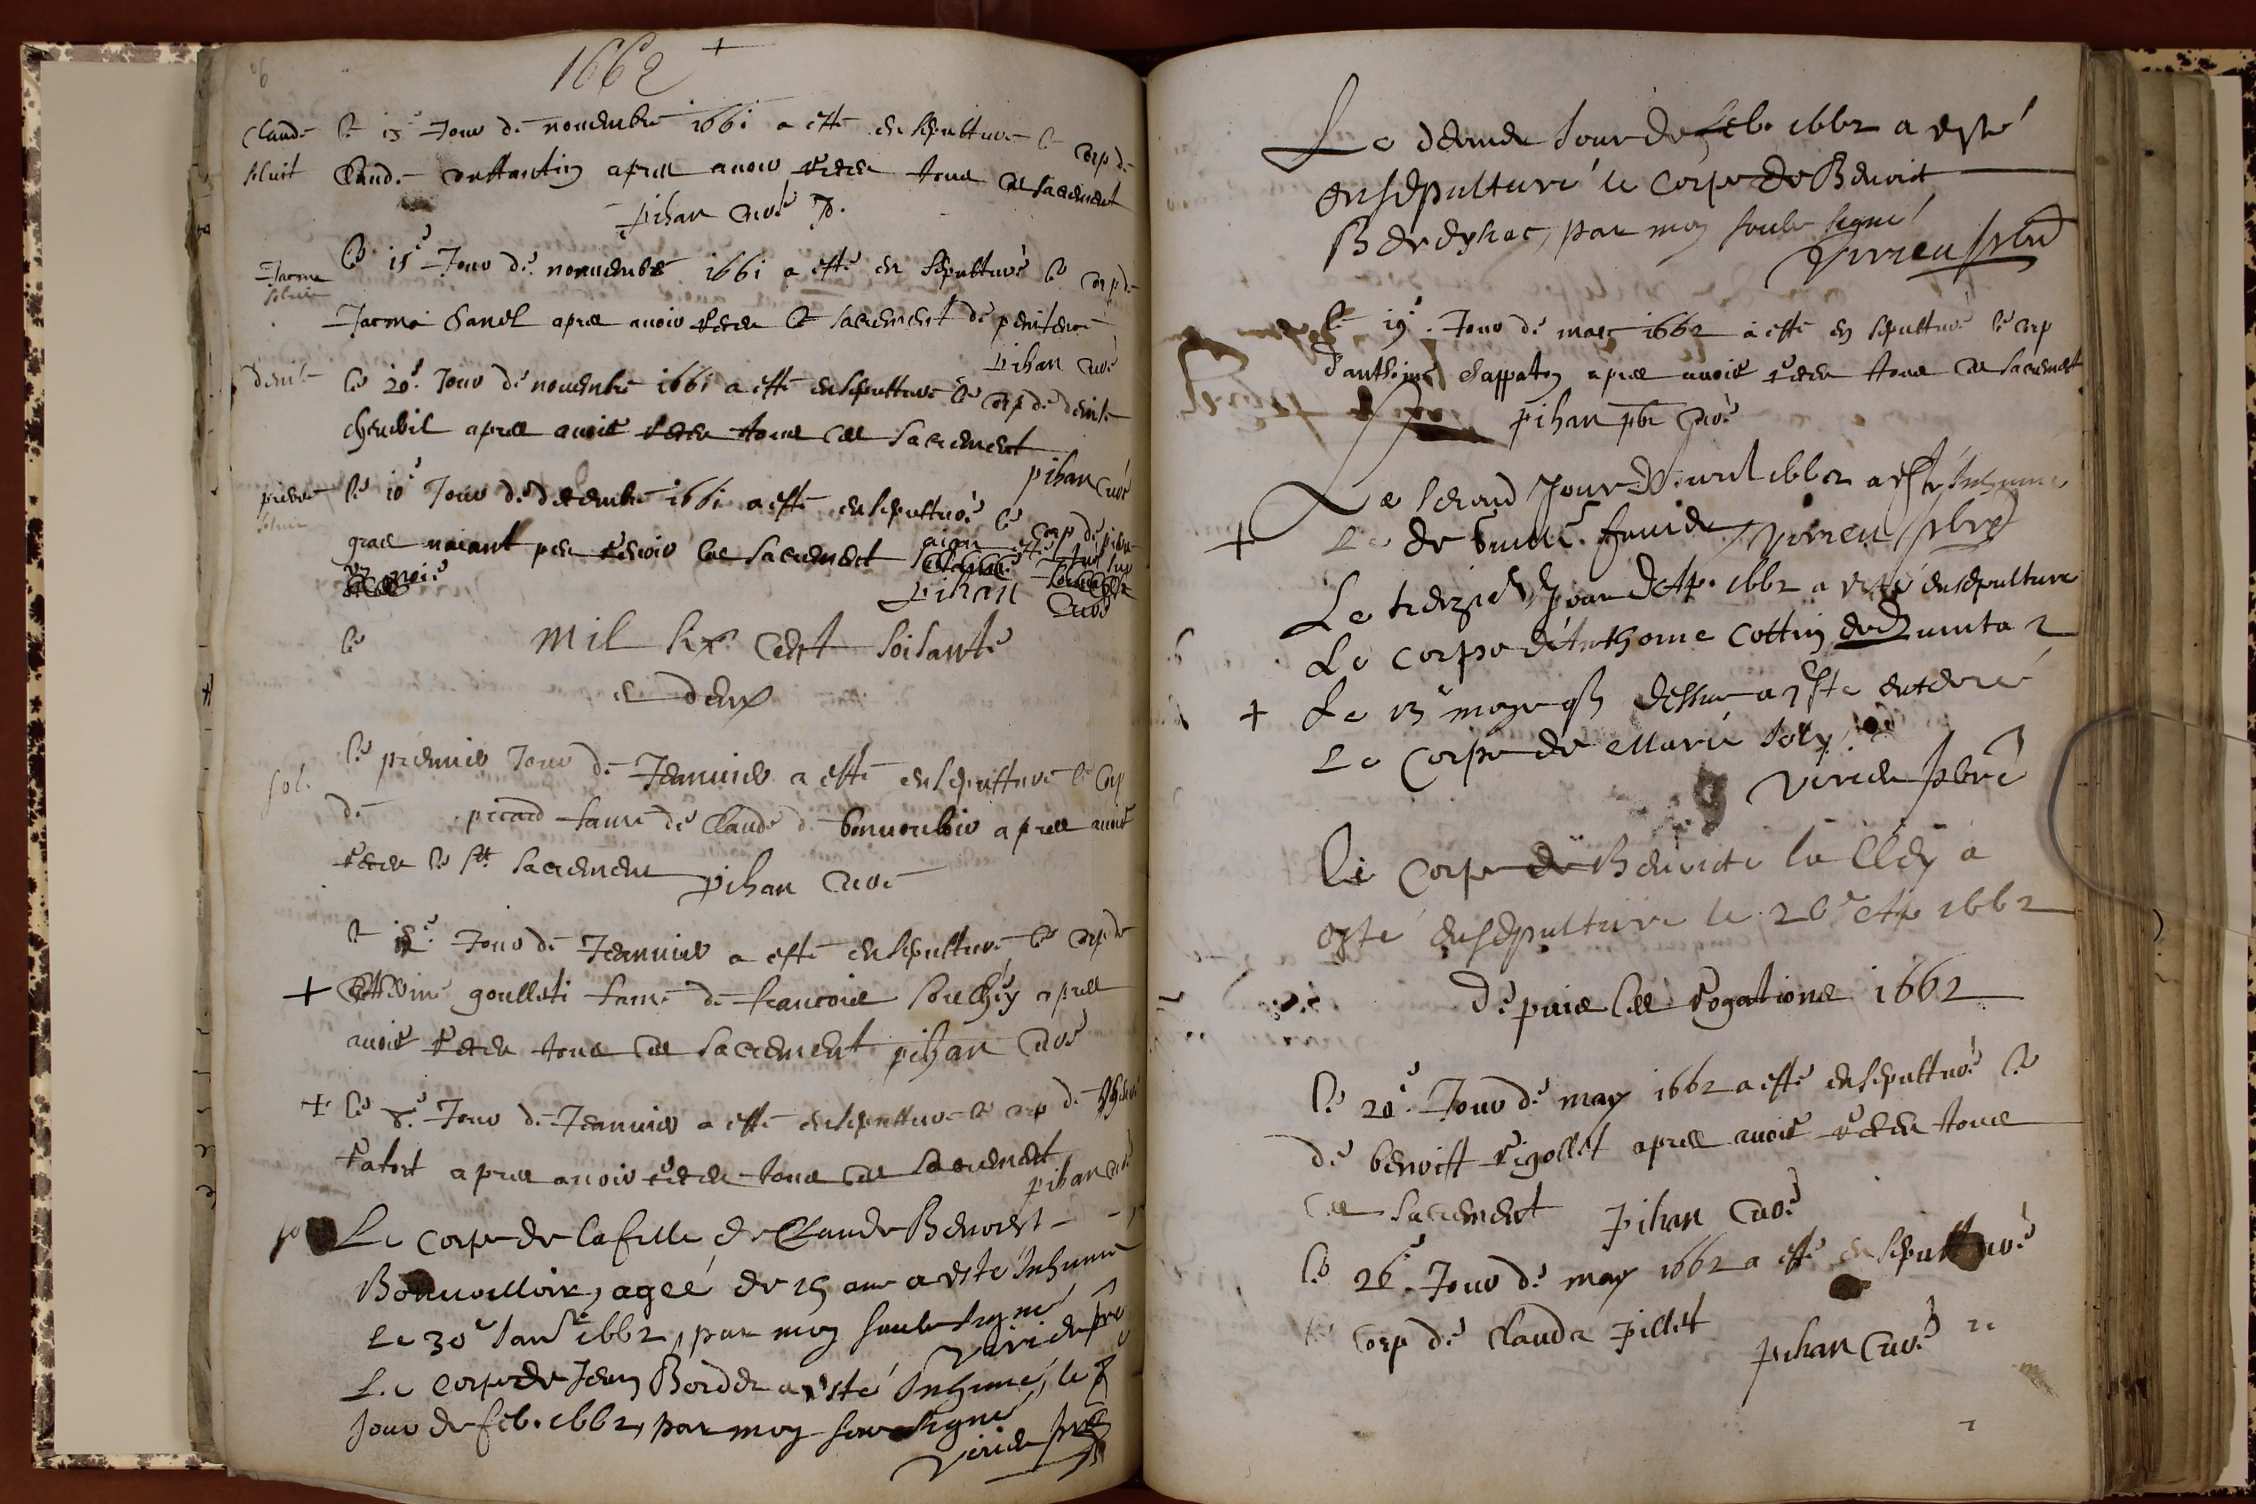 1662 +
Claude le 13e Jour de nouembre 1661 a esté ensepulturé le corp de
soluit Claude constantin apres auoir receu tous ces sacrement
pihan curé
le 15e Jour de nouembre 1661 a esté en sepulturé le corp de
Jacme
soluit
Jacme Canel apres auoir receu le sacrement de penitence
pihan curé
denise le 20e Jour de nouembre 1661 a esté ensepulturé le corp de denise
cheurbil apres auoir receu tous ces sacrement
pihan curé
pierre le 10e Jour de decembre 1661 a esté ensepulturé le corp de pierre
soluit
gras naiant peu receuoir ces sacrement
pihan curé
le mil six cent soisante
et deux
sol. le premier Jour de Jeanuier a esté ensepulturé le corp
de picard fame de Claude de bonuouloir apres auoir
receu le st sacrement pihan curé
le Jour de Jeanuier a esté ensepulturé le corp de
+ goulleti fame de francois apres
auoir receu tous ces sacrement pihan curé
+ le 8e Jour de Jeanuier a esté ensepulturé le corp de
ratort apres auoir receu tous ces sacrement
pihan curé
Le corps de la fille de Claude Benoist
Bonuoulloir, ageé de 15 ans a esté Inhumé
Le 30e Janr 1662, par moy soubsigné
Virieu pbre
Le corps de Jean Border a esté Inhumé, le
Jour de feb. 1662, par moy soubsigné
Virieu pbre
Le dernier Jour de feb. 1662 a esté
ensepulturé le corps de Benoist
par moy soubs signé
Virieu pbre
le 19e Jour de mars 1662 a esté en sepulturé le corp
d'anthoine chappaton apres auoir receu tous ces sacrement
pihan pbr curé
Le second Jour d'auril 1662 a esté Inhumé
+ Le de Virieu pbre
Le treizie Jour d'Ap. 1662 a esté ensepulturé
Le corps d'Anthoine Cottin
+ Le 13 moys q dessus a esté enterré
Le corps de Marie Joly
Virieu pbre
Le corps de Benoite la a
esté ensepulturé le 26e Ap 1662
Depuis les rogations 1662
le 20e Jour de may 1662 a esté ensepulturé le
de benoist rigollet apres auoir receu tous
ces sacrement pihan curé
le 26e Jour de may 1662 a esté en sepulturé
le corp de Clauda pillet pihan curé